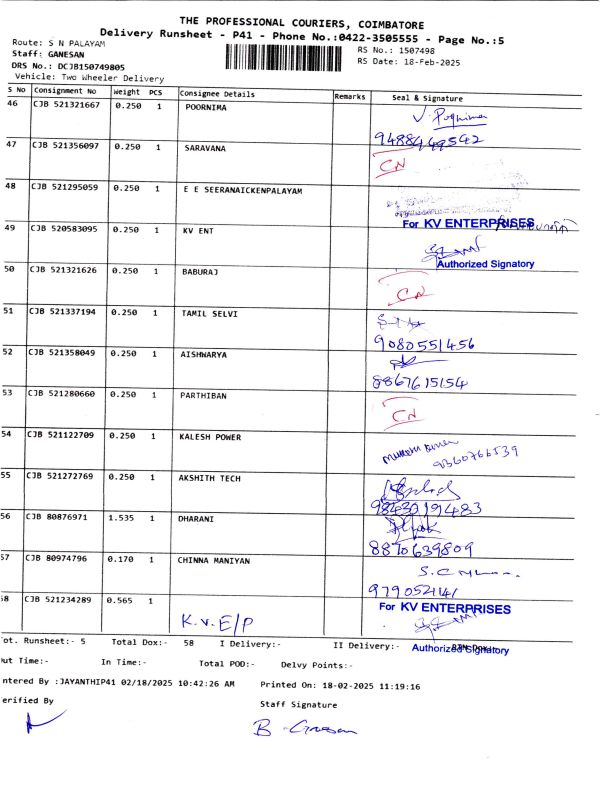 THE PROFESSIONAL COURIERS, COIMBATORE
Delivery Runsheet - P41 - Phone No.:0422-3505555 - Page No.:5
Route: S N PALAYAM
RS No.: 1507498
Staff: GANESAN
RS Date: 18-Feb-2025
DRS No.: DCJB150749805
Vehicle: Two Wheeler Delivery
S No Consignment No Weight PCS Consignee Details Remarks Seal & Signature
46 CJB 521321667 0.250 1 POORNIMA V. Poornima
9488449542
47 CJB 521356097 0.250 1 SARAVANA CN
48 CJB 521295059 0.250 1 E E SEERANAICKENPALAYAM
For KV ENTERPRISES
49 CJB 520583095 0.250 1 KV ENT
Authorized Signatory
50 CJB 521321626 0.250 1 BABURAJ CN
51 CJB 521337194 0.250 1 TAMIL SELVI
9080551456
52 CJB 521358049 0.250 1 AISHWARYA
8867615154
53 CJB 521280660 0.250 1 PARTHIBAN CN
54 CJB 521122709 0.250 1 KALESH POWER
9360766539
55 CJB 521272769 0.250 1 AKSHITH TECH
9843019483
56 CJB 80876971 1.535 1 DHARANI
8870639809
57 CJB 80974796 0.170 1 CHINNA MANIYAN
979052141
58 CJB 521234289 0.565 1 K.V.E/P For KV ENTERPRISES
ot. Runsheet:- 5 Total Dox:- 58 I Delivery:- II Delivery:- Authorized Signatory
ut Time:- In Time:- Total POD:- Delvy Points:-
ntered By :JAYANTHIP41 02/18/2025 10:42:26 AM Printed On: 18-02-2025 11:19:16
erified By Staff Signature